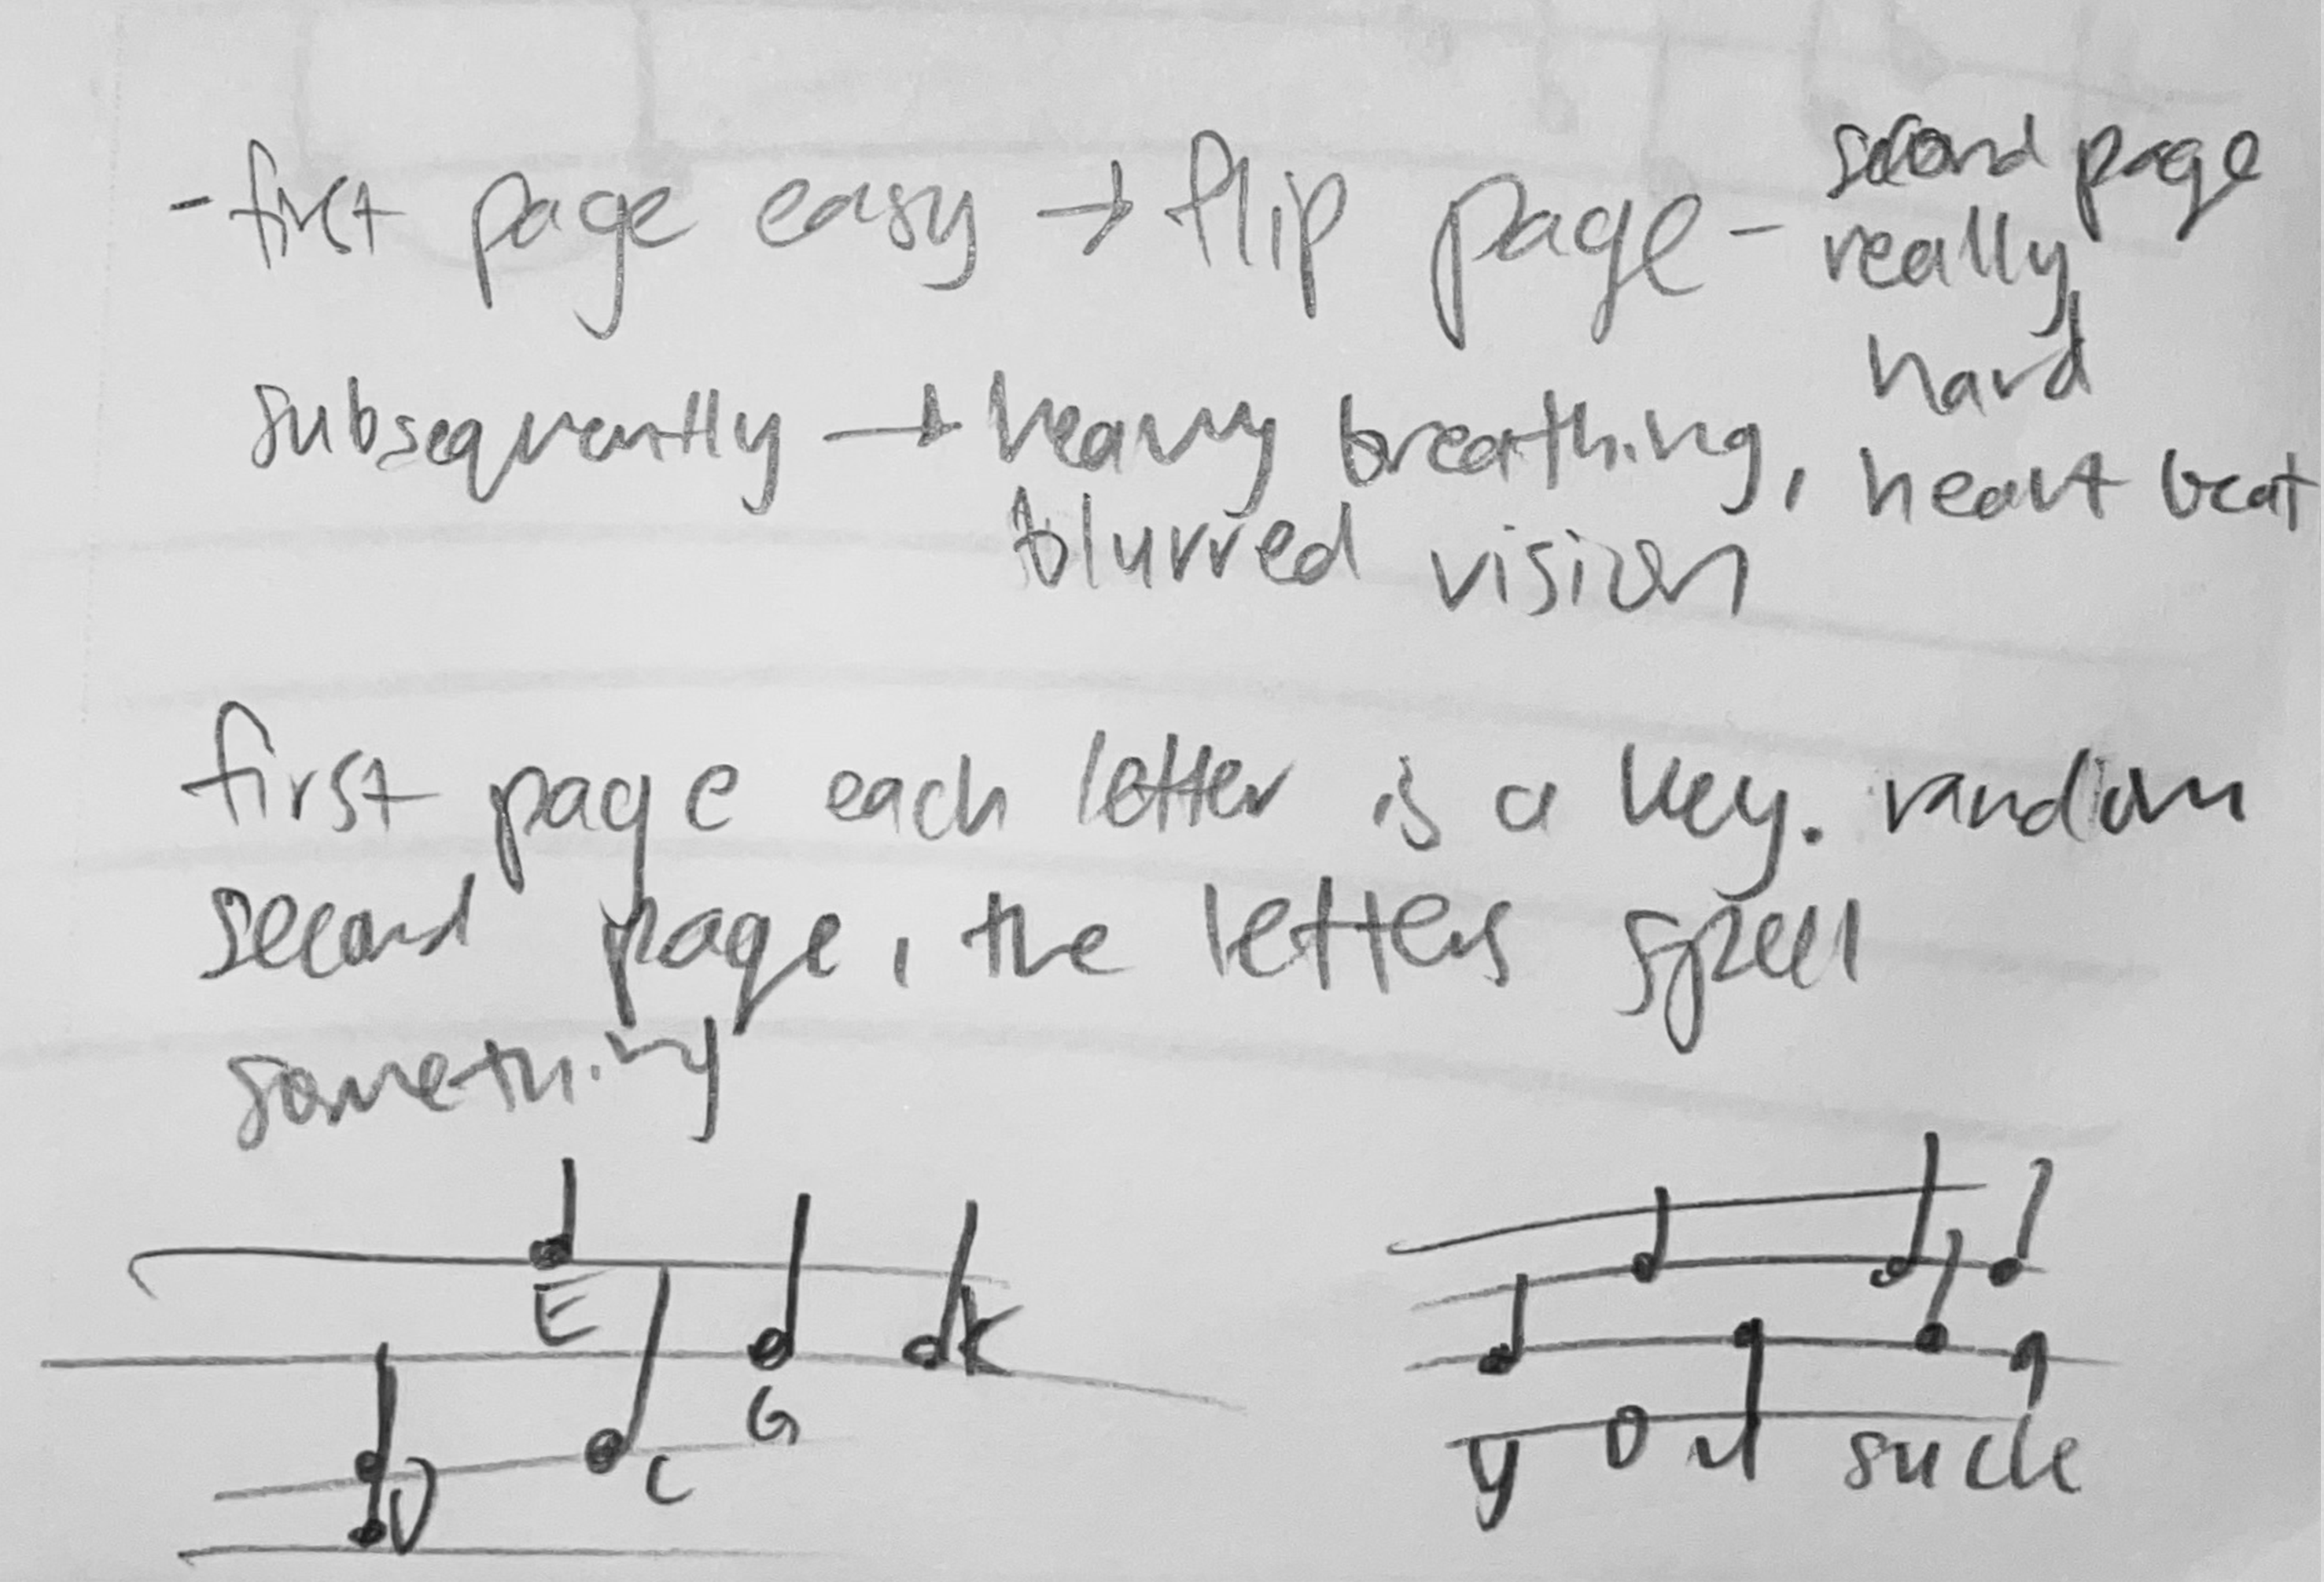 - first page easy → flip page - second page
really
hard
subsequently → heavy breathing, heart beat
blurred vision
first page each letter is a key. random
second page, the letters spell
something
E
D C G K
you suck